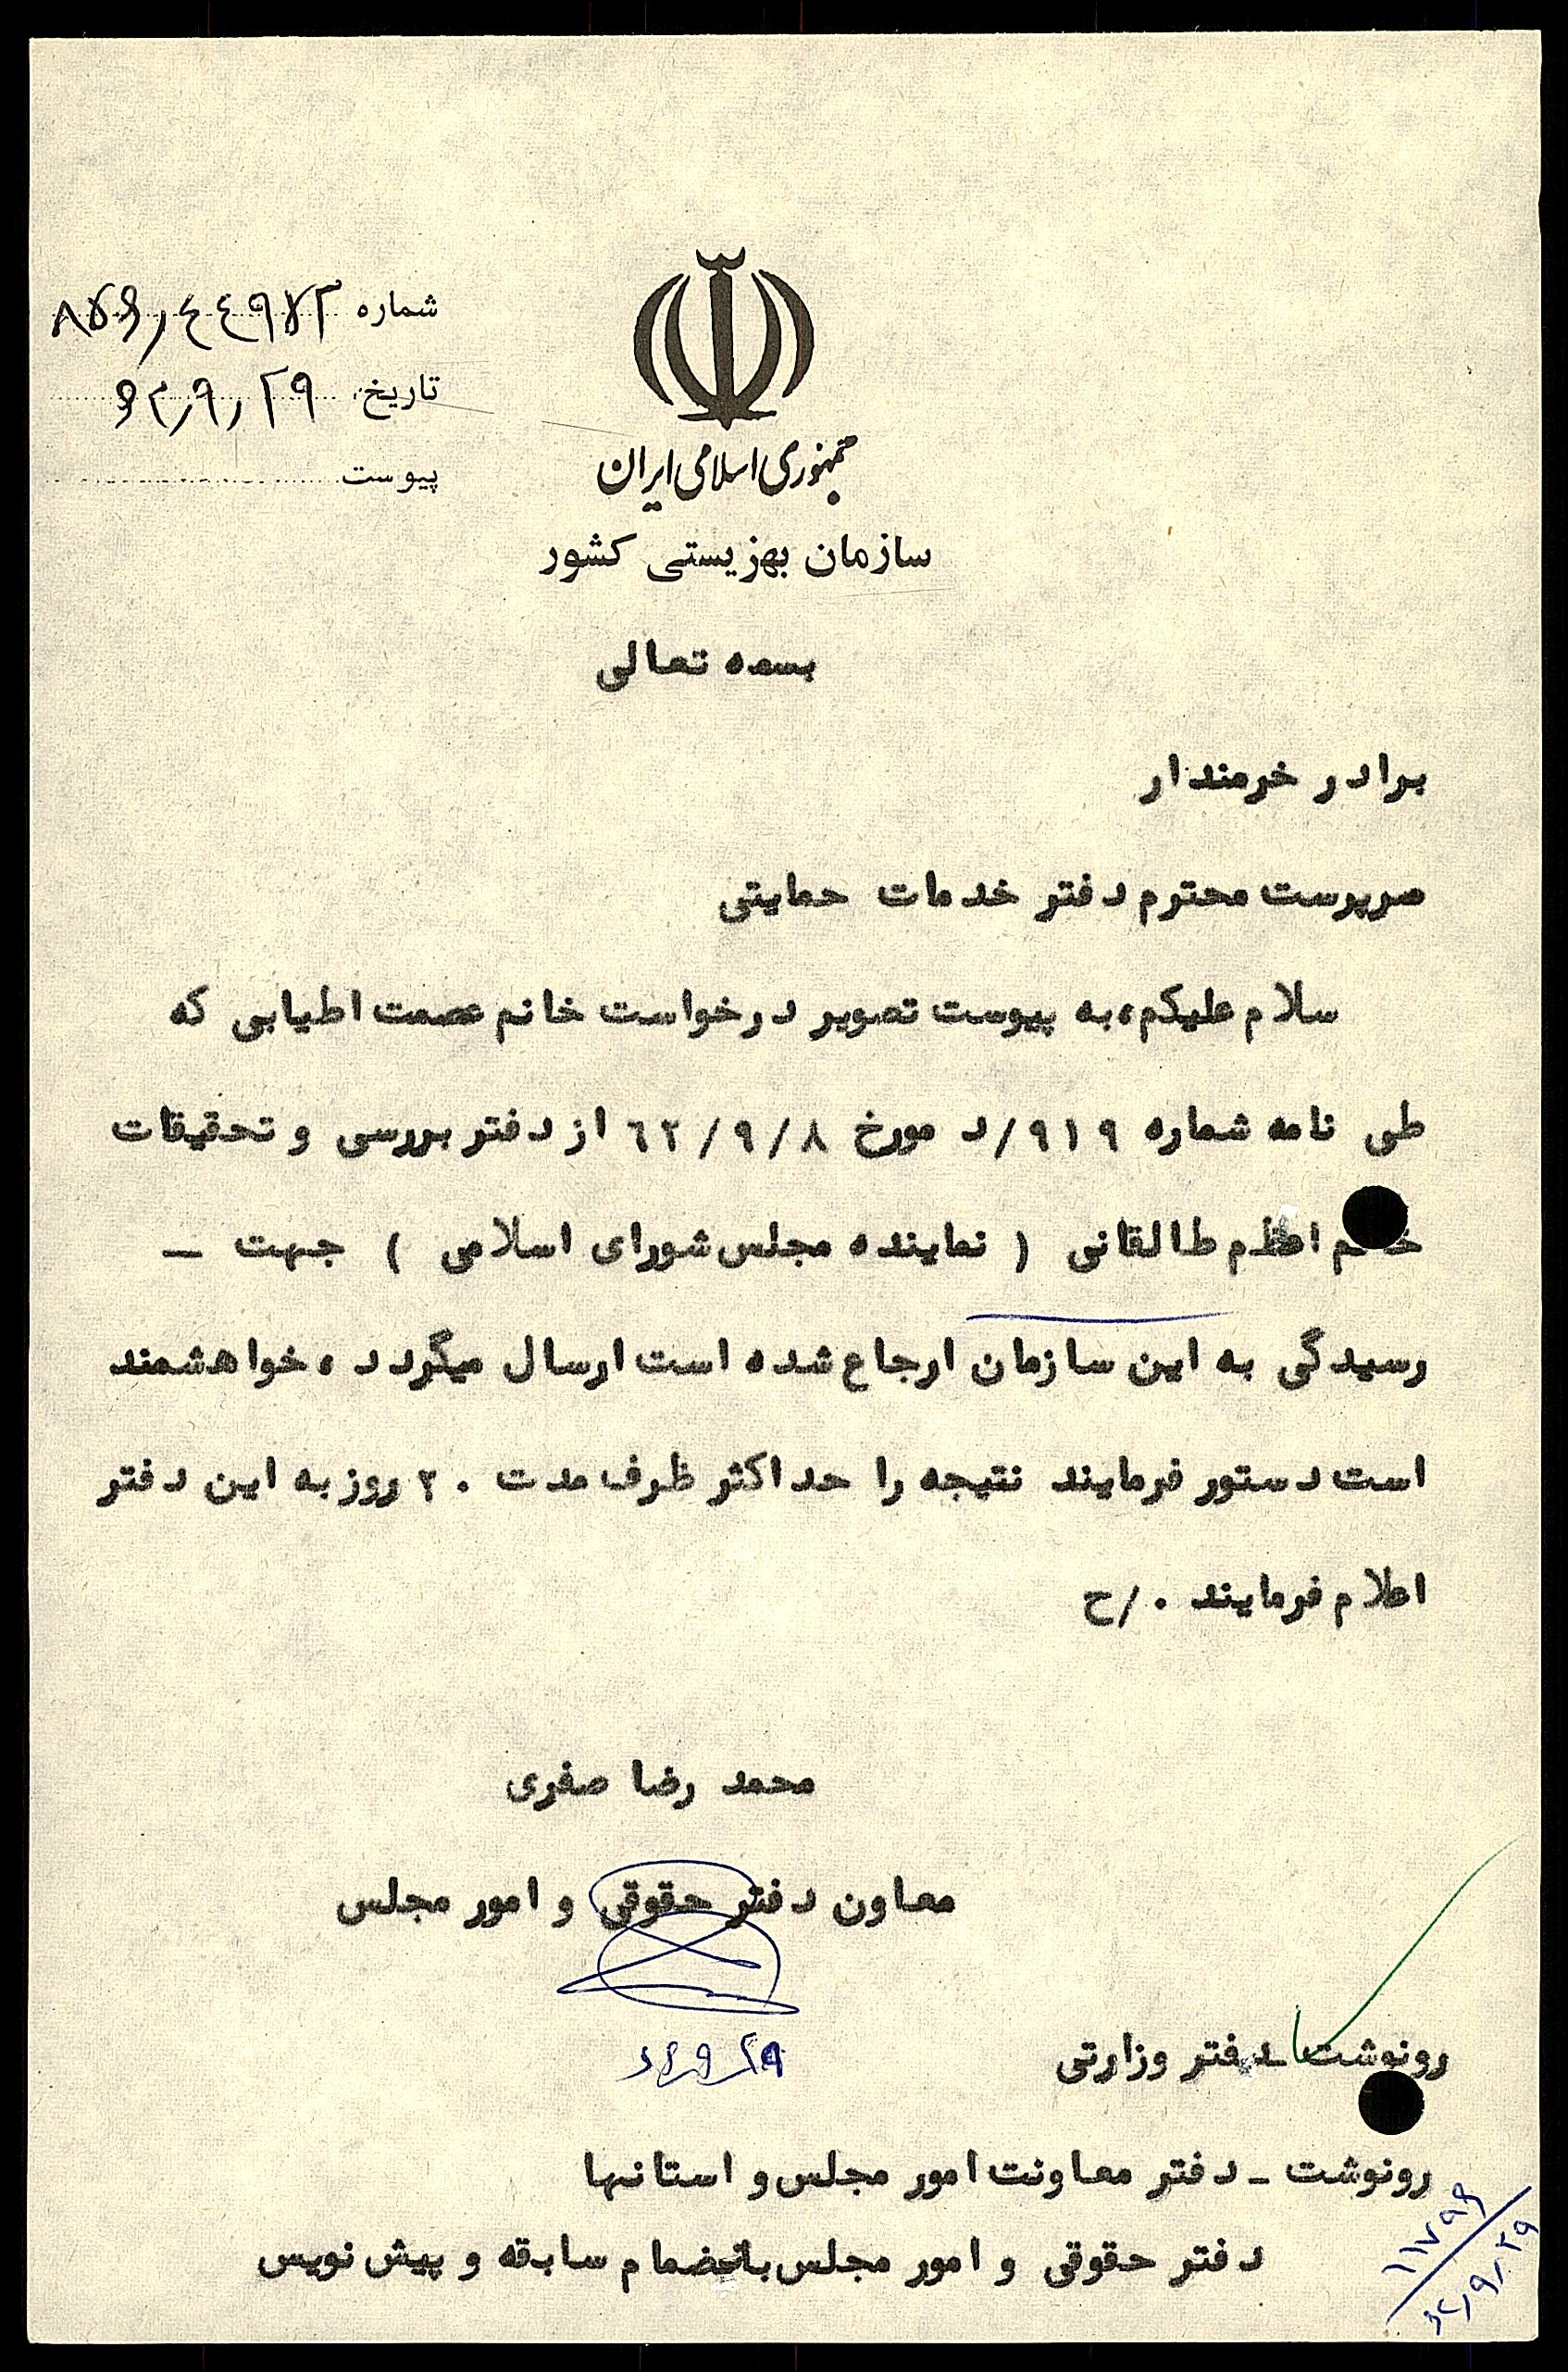 شماره ۸۷۶٫۴۴۹۷۳
تاریخ ۶۲٫۹٫۲۹
پیوست
جمهوری اسلامی ایران
سازمان بهزیستی کشور
بسمه تعالی
برادر خرمندار
سرپرست محترم دفتر خدمات حمایتی
سلام علیکم، به پیوست تصویر درخواست خانم عصمت اطیابی که
طی نامه شماره ۹۱۹/د مورخ ۶۲/۹/۸ از دفتر بررسی و تحقیقات
خانم اعظم طالقانی ( نماینده مجلس شورای اسلامی ) جهت ـ
رسیدگی به این سازمان ارجاع شده است ارسال میگردد، خواهشمند
است دستور فرمایند نتیجه را حداکثر ظرف مدت ۲۰ روز به این دفتر
اعلام فرمایند ۰/ح
محمد رضا صفری
معاون دفتر حقوقی و امور مجلس
رونوشت ـ دفتر وزارتی
رونوشت ـ دفتر معاونت امور مجلس و استانها
دفتر حقوقی و امور مجلس بانضمام سابقه و پیش نویس
۱۱۷۹۶
۶۲٫۹٫۲۹